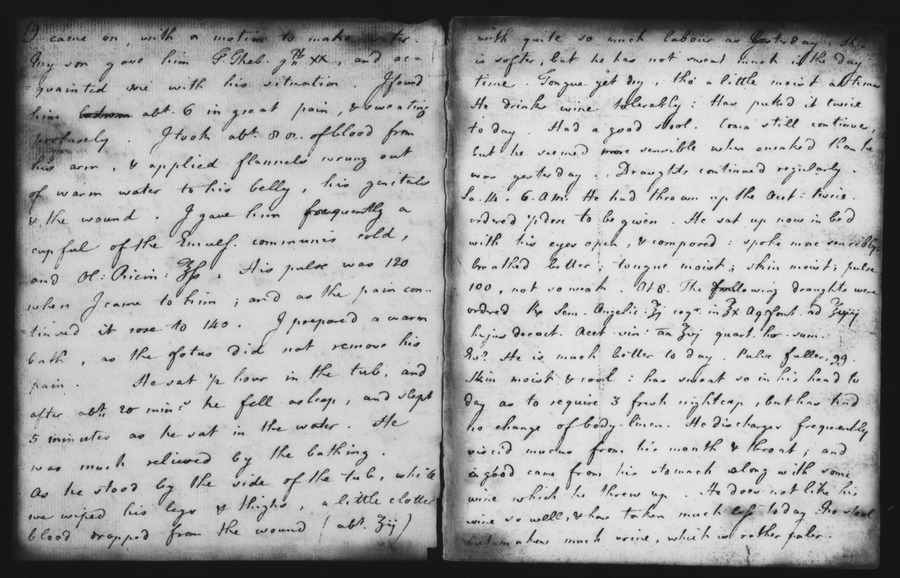 19 came on, with a motion to make water.
My son gave him T. Theb. gtt XX, and ac=
=quainted me with his situation. I found
him abt. 6 in great pain, & sweating
profusely. I took abt. 8 oz. of blood from
his arm, & applied flannels wrung out
of warm water to his belly, his genitals
& the wound. I gave him frequently a
cup full of the Emulf. communis cold,
and Ol: Ricin: ℥ſs. His pulse was 120
when I came to him; and as the pain con=
=tinued it rose to 140. I prepared a warm
bath, as the fotus did not remove his
pain. He sat ½ hour in the tub, and
after abt. 20 mins he fell asleep, and slept
5 minutes as he sat in the water. He
was much relieved by the bathing.
As he stood by the side of the tub, while
we wiped his legs & thighs, a little clotted
blood dropped from the wound (abt. ℥ij)
with quite so much labour as yesterday. Skin
is softer, but he has not sweat much in the day
time. Tongue yet dry, tho' a little moist at times
He drinks wine tolerably: Has puked it twice
to day. Had a good stool. Coma still continues,
but he seemed more sensible when awaked than he
was yesterday. Draughts continued regularly.
Sa. 14. 6. A.M. He had thrown up the Acet: twice.
ordered to be given. He sat up now in bed
with his eyes open, & composed: spoke more sensibly
breathed better; tongue moist; skin moist; pulse
100, not so weak. At 8. The following draughts were
ordered Rx Sem. Angelic. ℥j coq. in ℥X Aq. font. ad
hujus decoct. Acet. vini aa ℥ij quart. hor. sum.
No. He is much better to day. Pulse fuller, 99.
Skin moist & cool: has sweat so in his head to
day as to require 3 fresh nightcaps, but has had
no change of body-linen. He discharges frequently
viscid mucus from his mouth & throat; and
a good came from his stomach along with some
wine which he threw up. He does not like his
wine so well, & has taken much less to day. No stool
but makes much urine, which is rather paler.